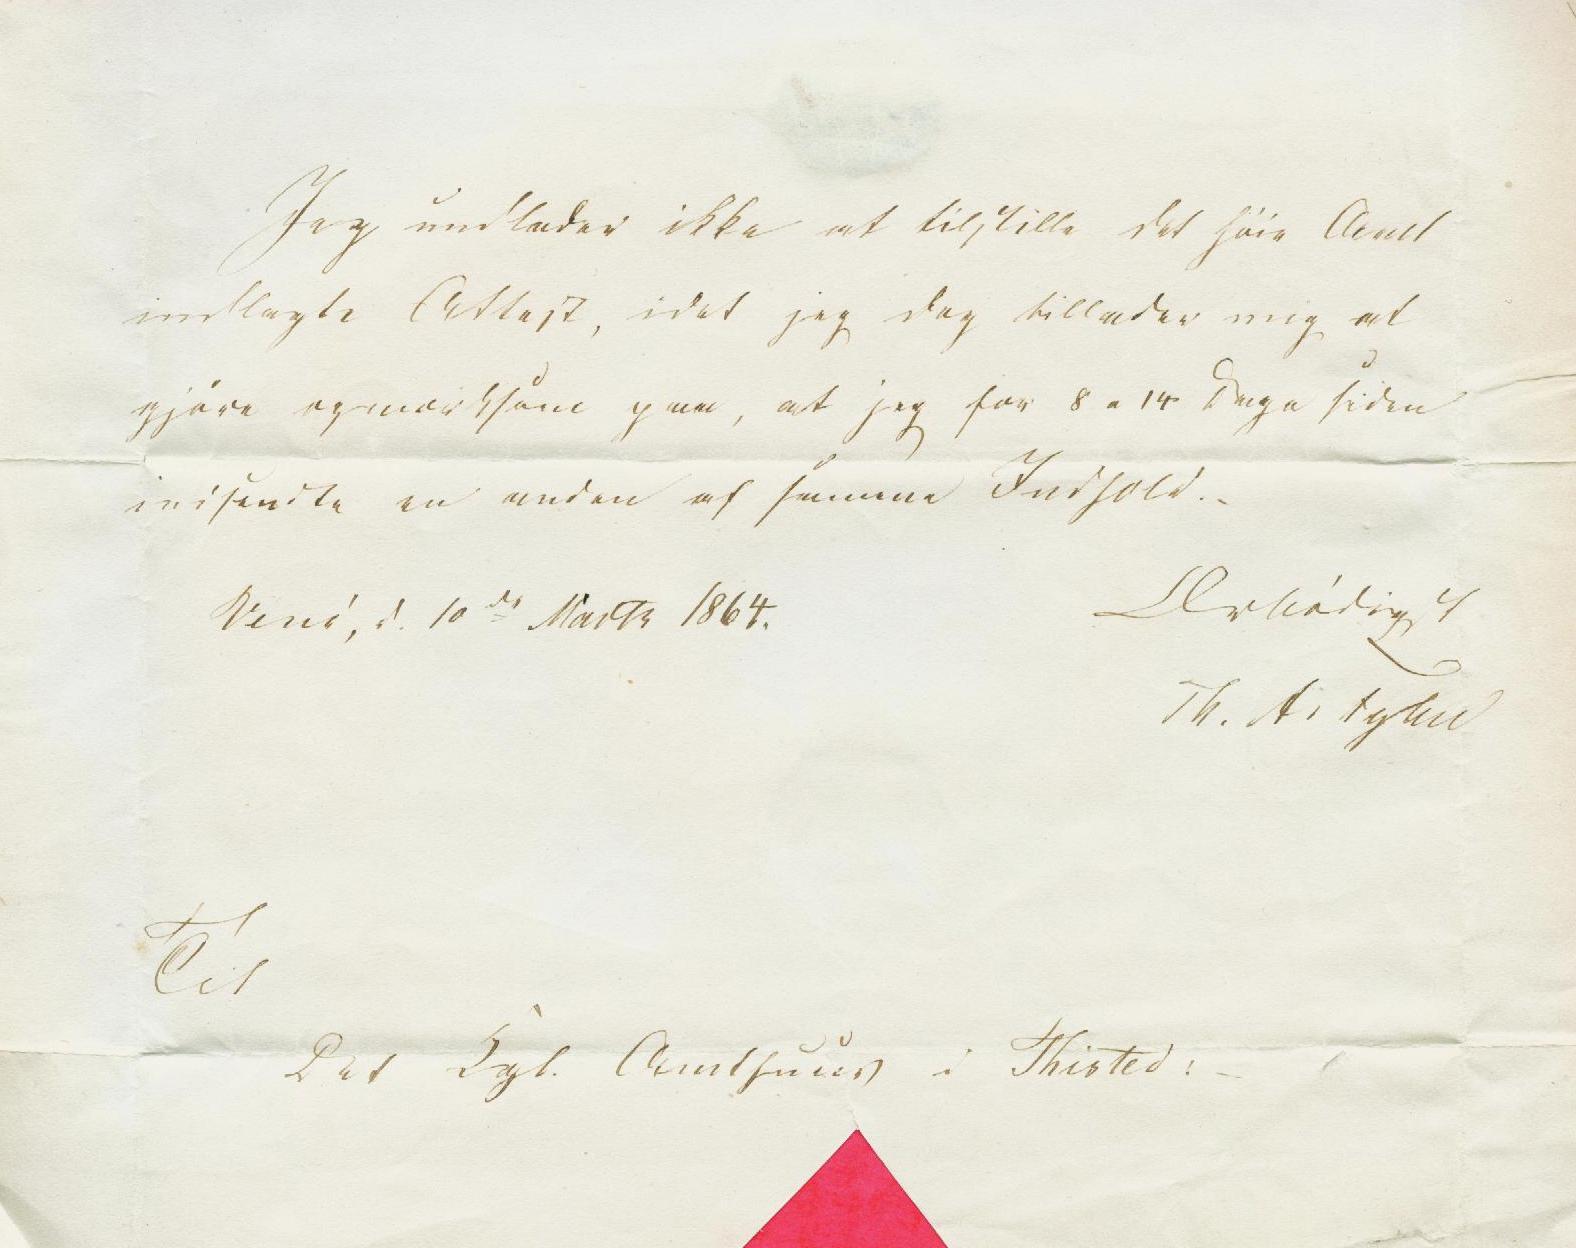 Jeg undlader ikke at tilstille det höie Amt
indlagte Attest, idet jeg dog tillader mig at
gjöre opmærksom paa, at jeg for 8 a 14 Dage siden
indsendte en anden af samme Indhold.-
Venö, d. 10de Marts 1864.
Ærbödigst
Th.
Til
Det Kgl. Amthuus i Thisted:-